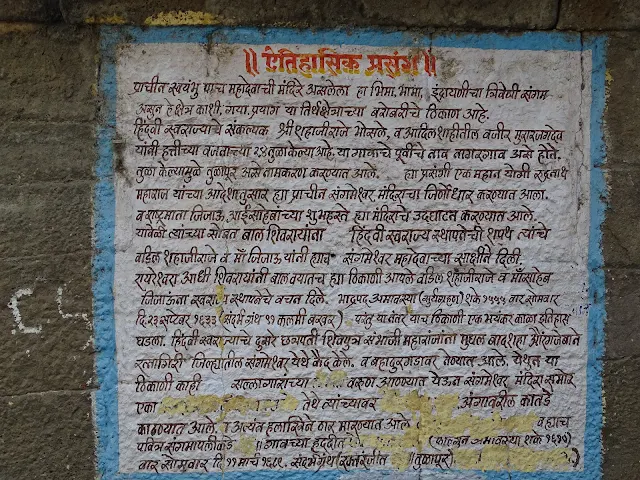 ॥ ऐतिहासिक प्रसंग ॥
प्राचीन स्वयंभु पाच महादेवाची मंदिरे असलेला हा भिमा, भामा, इंद्रायणीचा त्रिवेणी संगम
असुन हे क्षेत्र काशी, गया, प्रयाग या तिर्थक्षेत्राच्या बरोबरीचे ठिकाण आहे.
हिंदवी स्वराज्याचे संकल्पक श्री शहाजीराजे भोसले, व आदिलशाहीतील वजीर मुरारजगदेव
यांनी हत्तीच्या वजनाच्या २४ तुळा केल्या आहे. या गावाचे पूर्वीचे नाव नागरगाव असे होते.
तुळा केल्यामुळे तुळापूर असे नामकरण करण्यात आले. ह्या प्रसंगी एक महान योगी रुद्रनाथ
महाराज यांच्या आदेशानुसार ह्या प्राचीन संगमेश्वर मंदिराचा जिर्णोध्दार करण्यात आला.
व राष्ट्रमाता जिजाऊ आईसाहेबांच्या शुभहस्ते ह्या मंदिराचे उदघाटन करण्यात आले.
यावेळी त्यांच्या सोबत बाल शिवरायांना हिंदवी स्वराज्य स्थापनेची शपथ त्यांचे
वडिल शहाजीराजे व माँ जिजाऊ यांनी ह्याच संगमेश्वर महादेवाच्या साक्षीने दिली.
रायरेश्वरा आधी शिवरायांनी बालवयातच ह्या ठिकाणी आपले वडिल शहाजीराजे व माँसाहेब
जिजाऊंना स्वराज्य स्थापनेचे वचन दिले. भाद्रपद अमावस्या (सुर्यग्रहण) शके १५५५ वार सोमवार
दि. २३ सप्टेंबर १६३३ (संदर्भ ग्रंथ ९१ कलमी बखर) परंतु या नंतर याच ठिकाणी एक भयंकर काळा इतिहास
घडला. हिंदवी स्वराज्याचे दुसरे छत्रपती शिवपुत्र संभाजी महाराजांना मुघल बादशहा औरंगजेबाने
रत्नागिरी जिल्ह्यातील संगमेश्वर येथे कैद केले. व बहादुरगडावर नेण्यात आले. येथुन या
ठिकाणी काही सल्लागाराच्या वरुण आणण्यात येऊन संगमेश्वर मंदिरासमोर
एका तेथे त्यांच्यावर अंगावरील कातडे
काढण्यात आले. व अत्यंत हलाखिने ठार मारण्यात आले व ह्याच
पवित्र संगमापलीकडे गावच्या हद्दीत (फाल्गुन अमावस्या शके १६१०)
वार सोमवार दि ११ मार्च १६८९. संदर्भ ग्रंथ रक्तरंजीत तुळापूर